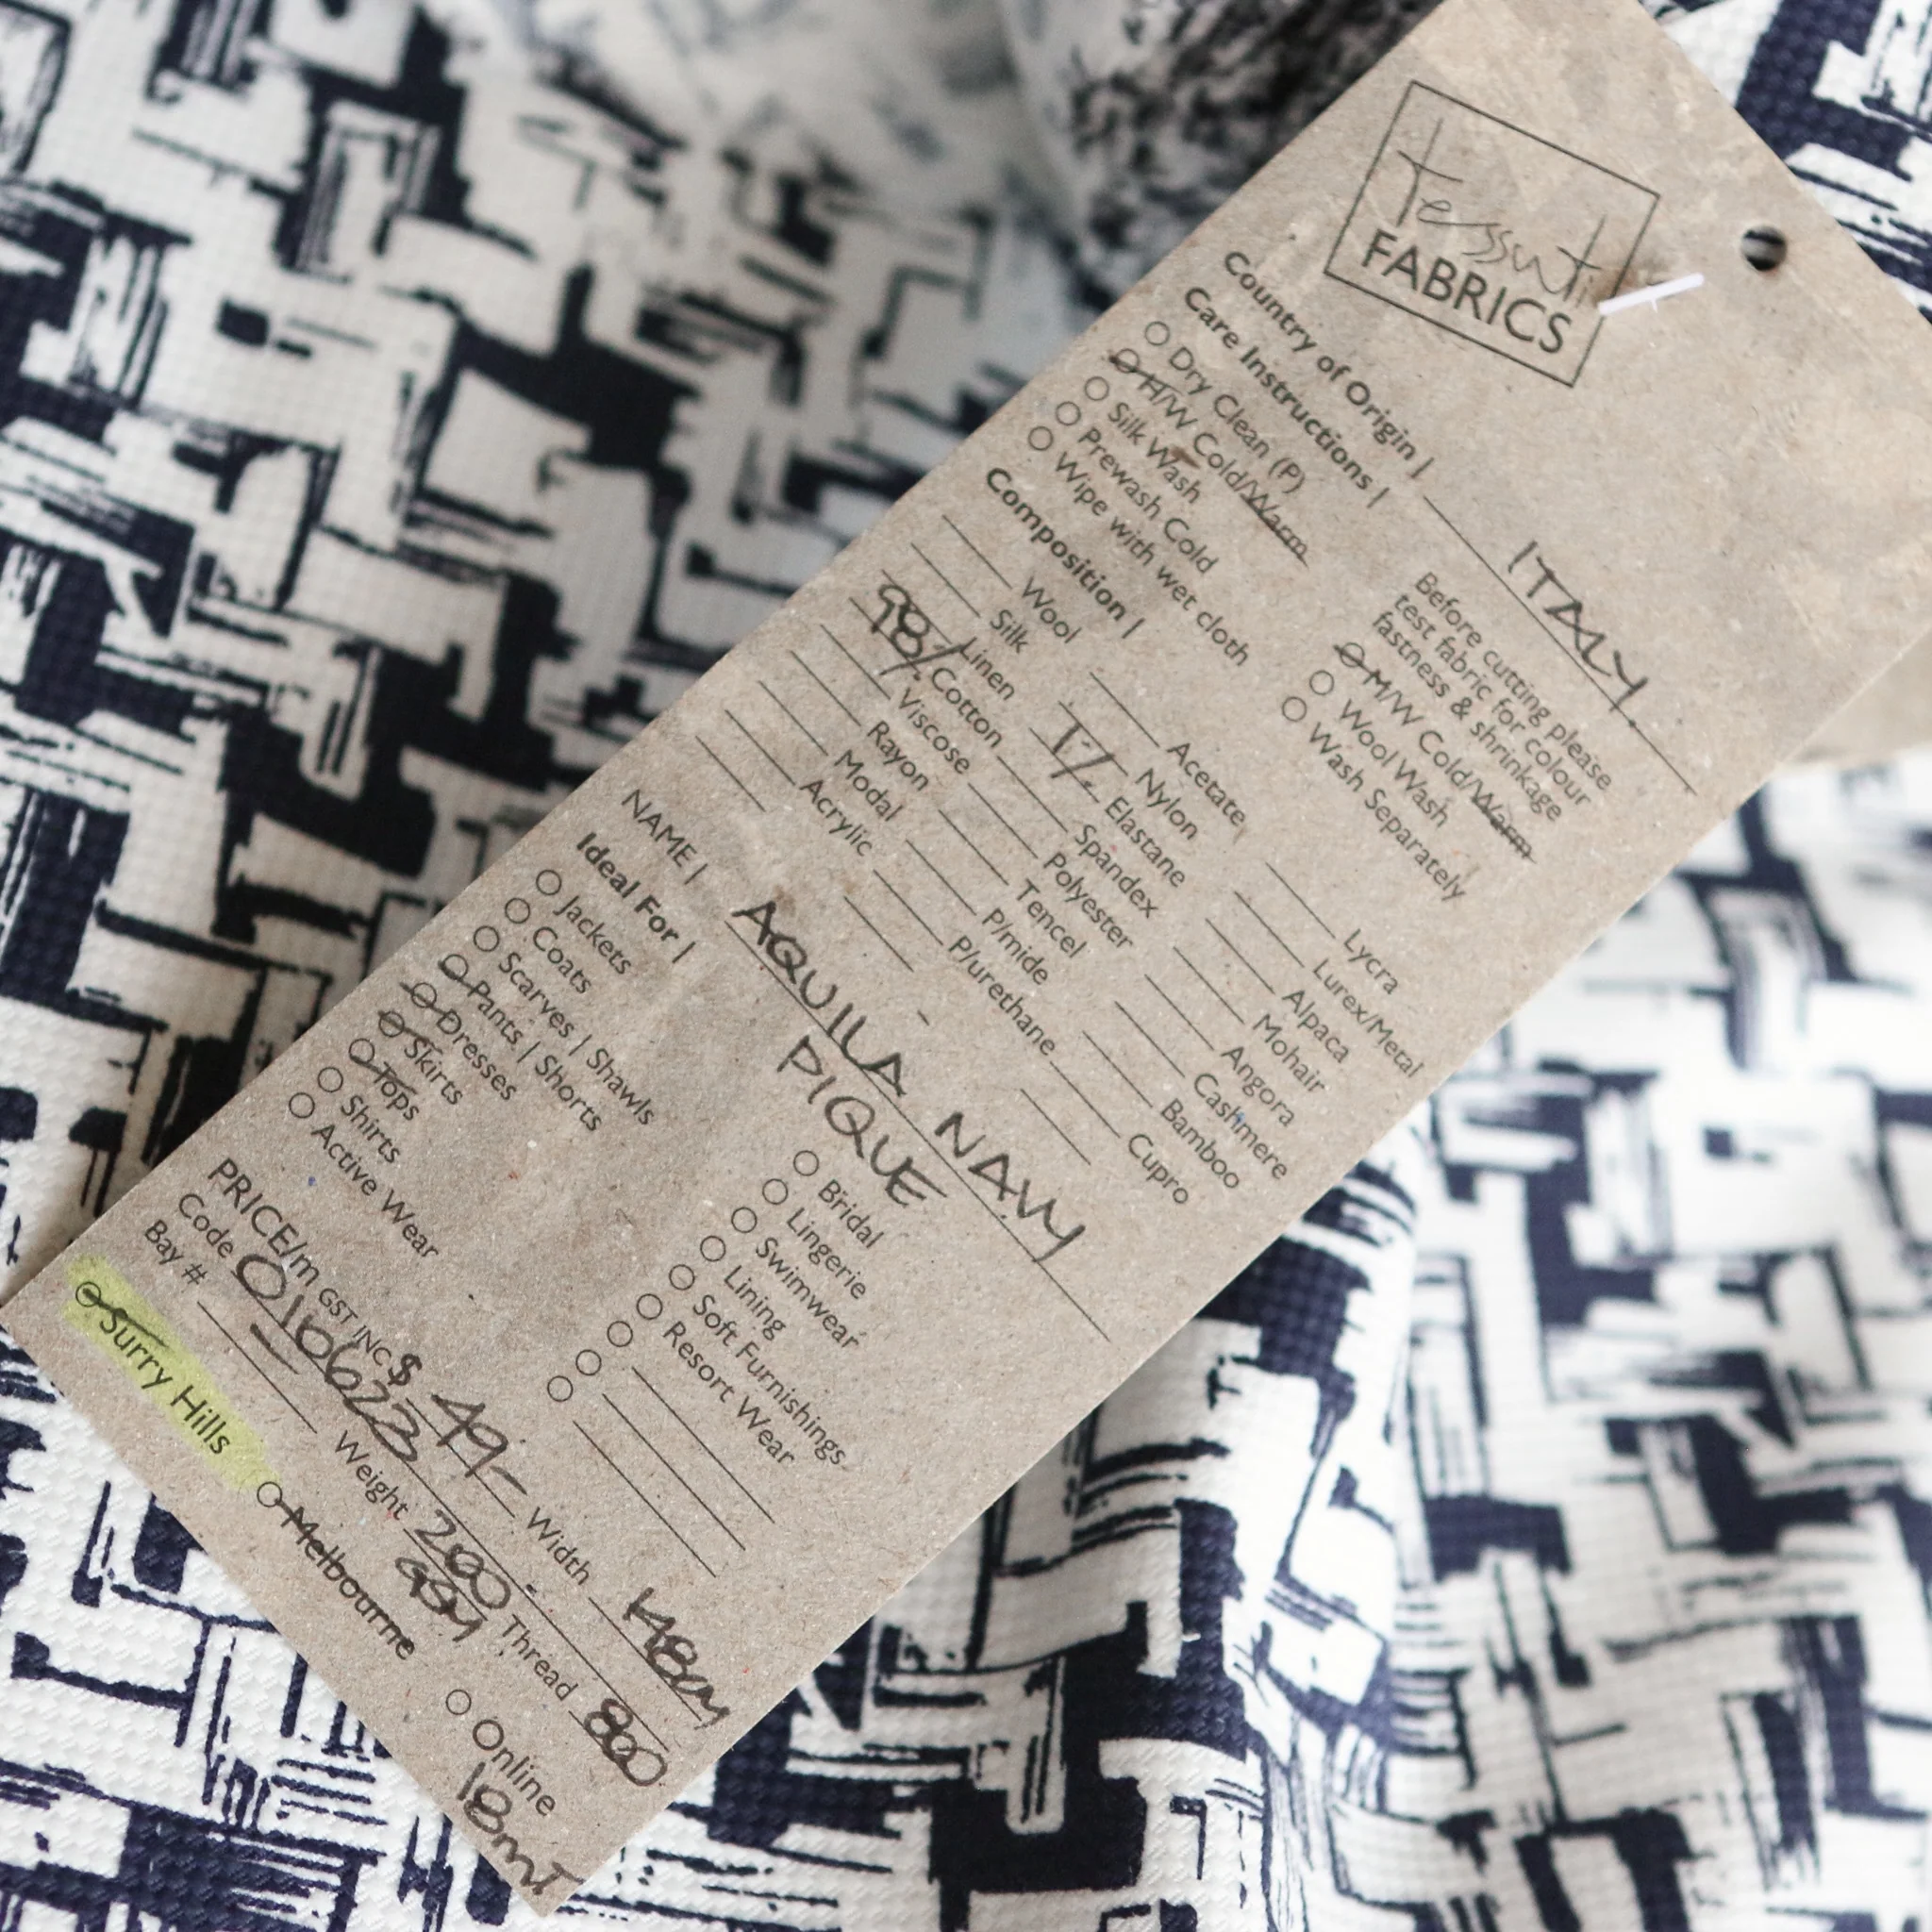 tessuti
FABRICS
Country of Origin | ITALY.
Care Instructions |
Before cutting please
test fabric for colour
fastness & shrinkage
Dry Clean (P)
H/W Cold/Warm
Silk Wash
Prewash Cold
Wipe with wet cloth
M/W Cold/Warm
Wool Wash
Wash Separately
Composition |
Wool
Silk
Linen
98% Cotton
Viscose
Rayon
Modal
Acrylic
Acetate
Nylon
Elastane
Spandex
Polyester
Tencel
P/mide
P/urethane
Lycra
Lurex/Metal
Alpaca
Mohair
Angora
Cashmere
Bamboo
Cupro
NAME | AQUILA NAVY
PIQUE
Ideal For |
Jackets
Coats
Scarves | Shawls
Pants | Shorts
Dresses
Skirts
Tops
Shirts
Active Wear
Bridal
Lingerie
Swimwear
Lining
Soft Furnishings
Resort Wear
PRICE/m GST INC $ 49- Width 148cm
Code 016623 Thread 800
Bay # Weight 200
GSM
Surry Hills Melbourne Online
18mt